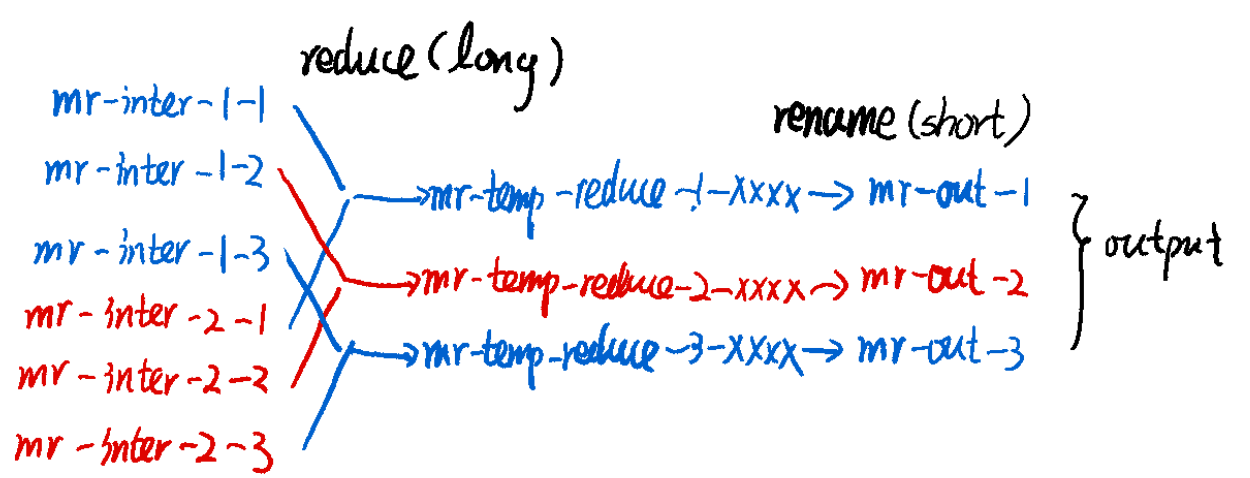 reduce(long)
rename(short)
mr-inter-1-1
mr-inter-1-2
mr-inter-1-3
mr-inter-2-1
mr-inter-2-2
mr-inter-2-3
mr-temp-reduce-1-xxxx → mr-out-1
mr-temp-reduce-2-xxxx → mr-out-2
mr-temp-reduce-3-xxxx → mr-out-3
output